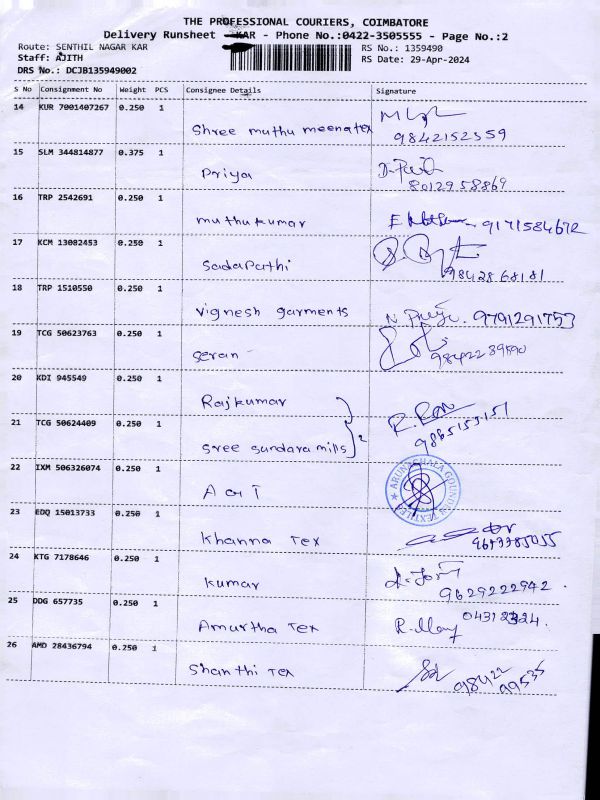 THE PROFESSIONAL COURIERS, COIMBATORE
Delivery Runsheet KAR - Phone No.:0422-3505555 - Page No.:2
Route: SENTHIL NAGAR KAR
RS No.: 1359490
Staff: AJITH
RS Date: 29-Apr-2024
DRS No.: DCJB135949002
S No Consignment No Weight PCS Consignee Details Signature
14 KUR 7001407267 0.250 1
Shree muthu meenatex 9842152359
15 SLM 344814877 0.375 1
Priya 8012958869
16 TRP 2542691 0.250 1
muthukumar 9171584672
17 KCM 13082453 0.250 1
Sadapathi 9842868181
18 TRP 1510550 0.250 1
vignesh garments 9791291753
19 TCG 50623763 0.250 1
seran
20 KDI 945549 0.250 1
Rajkumar
21 TCG 50624409 0.250 1
sree sundara mills 2
22 IXM 506326074 0.250 1
A G T ARUNACHALA GOUNDER TEXTILES
23 EDQ 15013733 0.250 1
Khanna Tex
24 KTG 7178646 0.250 1
Kumar 9629222942
25 DDG 657735 0.250 1
Amurtha Tex
26 AMD 28436794 0.250 1
Shanthi Tex 9842299535